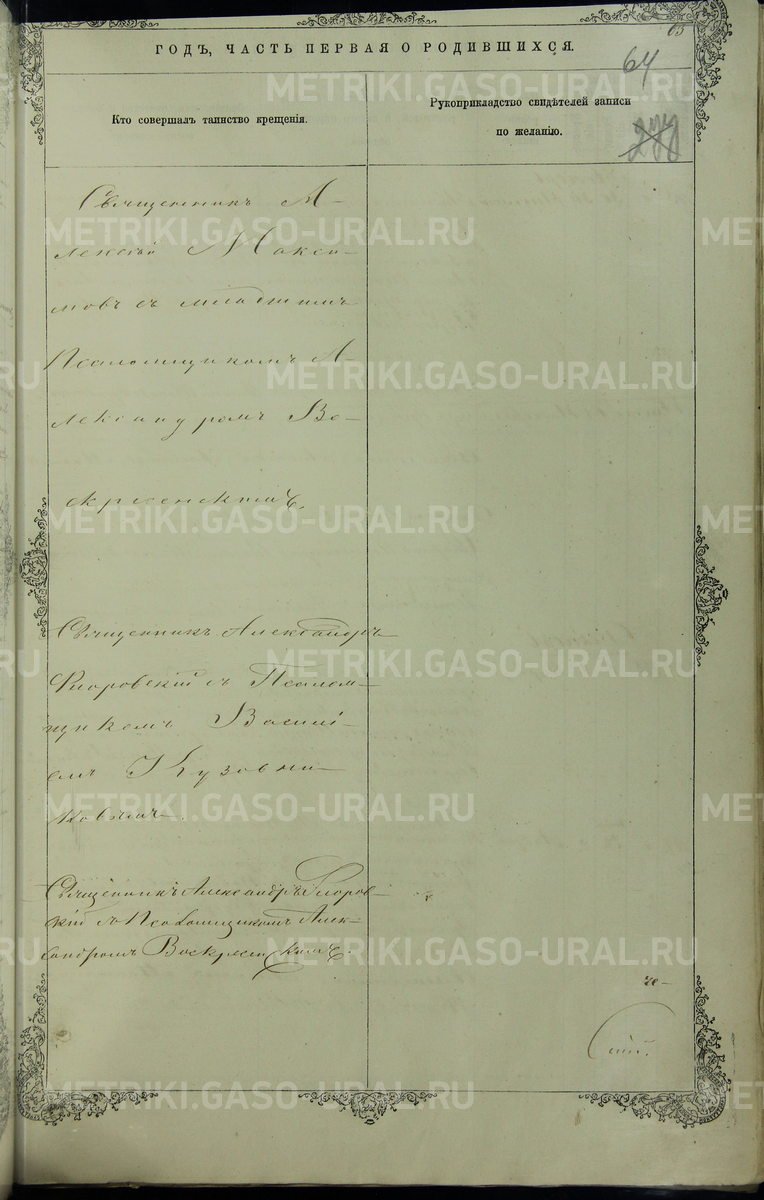 65
ГОДЪ, ЧАСТЬ ПЕРВАЯ О РОДИВШИХСЯ.
64
Кто совершалъ таинство крещенія.
Рукоприкладство свидѣтелей записи
по желанію.
Священникъ А-
лексѣй Макси-
мовъ съ младшимъ
Псаломщикомъ А-
лександромъ Во-
скресенскимъ.
Священникъ Александръ
Флоровскій съ Псалом-
щикомъ Василі-
емъ Кузовни-
ковымъ.
Священникъ Александръ Флоров-
скій съ Псаломщикомъ Алек-
сандромъ Воскресенскимъ.
METRIKI.GASO-URAL.RU